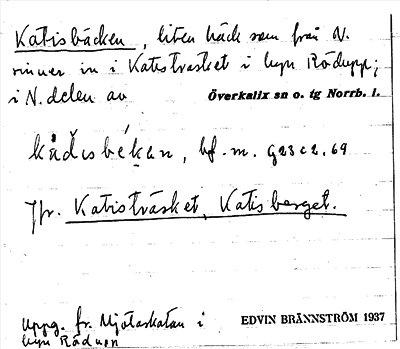 Katisbäcken, liten bäck som från N.
rinner in i Katisträsket i byn Rödupp;
i N. delen av Överkalix sn o. tg Norrb. l.
bf. m. G23c2.69
Jfr. Katisträsket, Katisberget.
Uppg. fr. i
byn Rödupp
EDVIN BRÄNNSTRÖM 1937